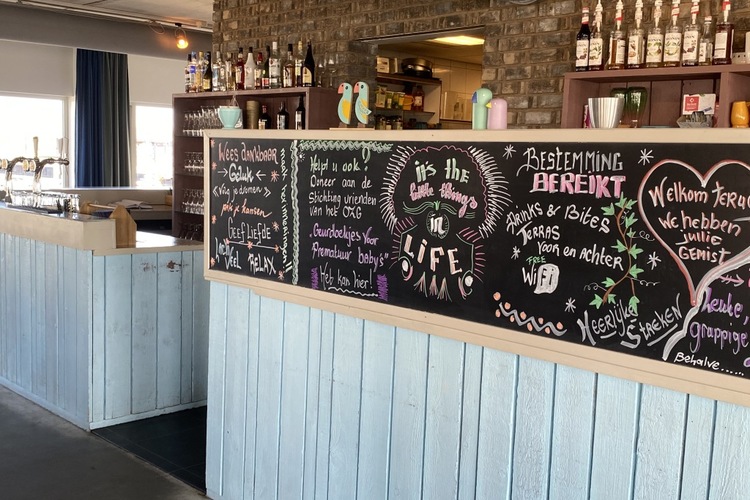 Wees dankbaar
Geluk
Volg je dromen
pak je kansen
GEEF LIEFDE
RELAX
Helpt u ook?
Doneer aan de
Stichting vrienden
van het OZG
"Geurdoekjes voor
Prematuur baby's"
Het kan hier!
it's the
little things
in
LIFE
BESTEMMING
BEREIKT
DRINKS & BITES
TERRAS
VOOR EN ACHTER
FREE
WiFi
HEERLIJKE
STREKEN
Welkom terug
We hebben
jullie
GEMIST
Leuke,
grappige
Behalve......